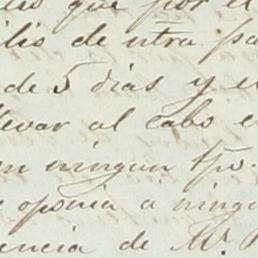 que por el
ilio de ntra pa
de 5 dias y e
llevar al cabo e
en ningun tpo.
e oponia a ningu
encia de Mr.